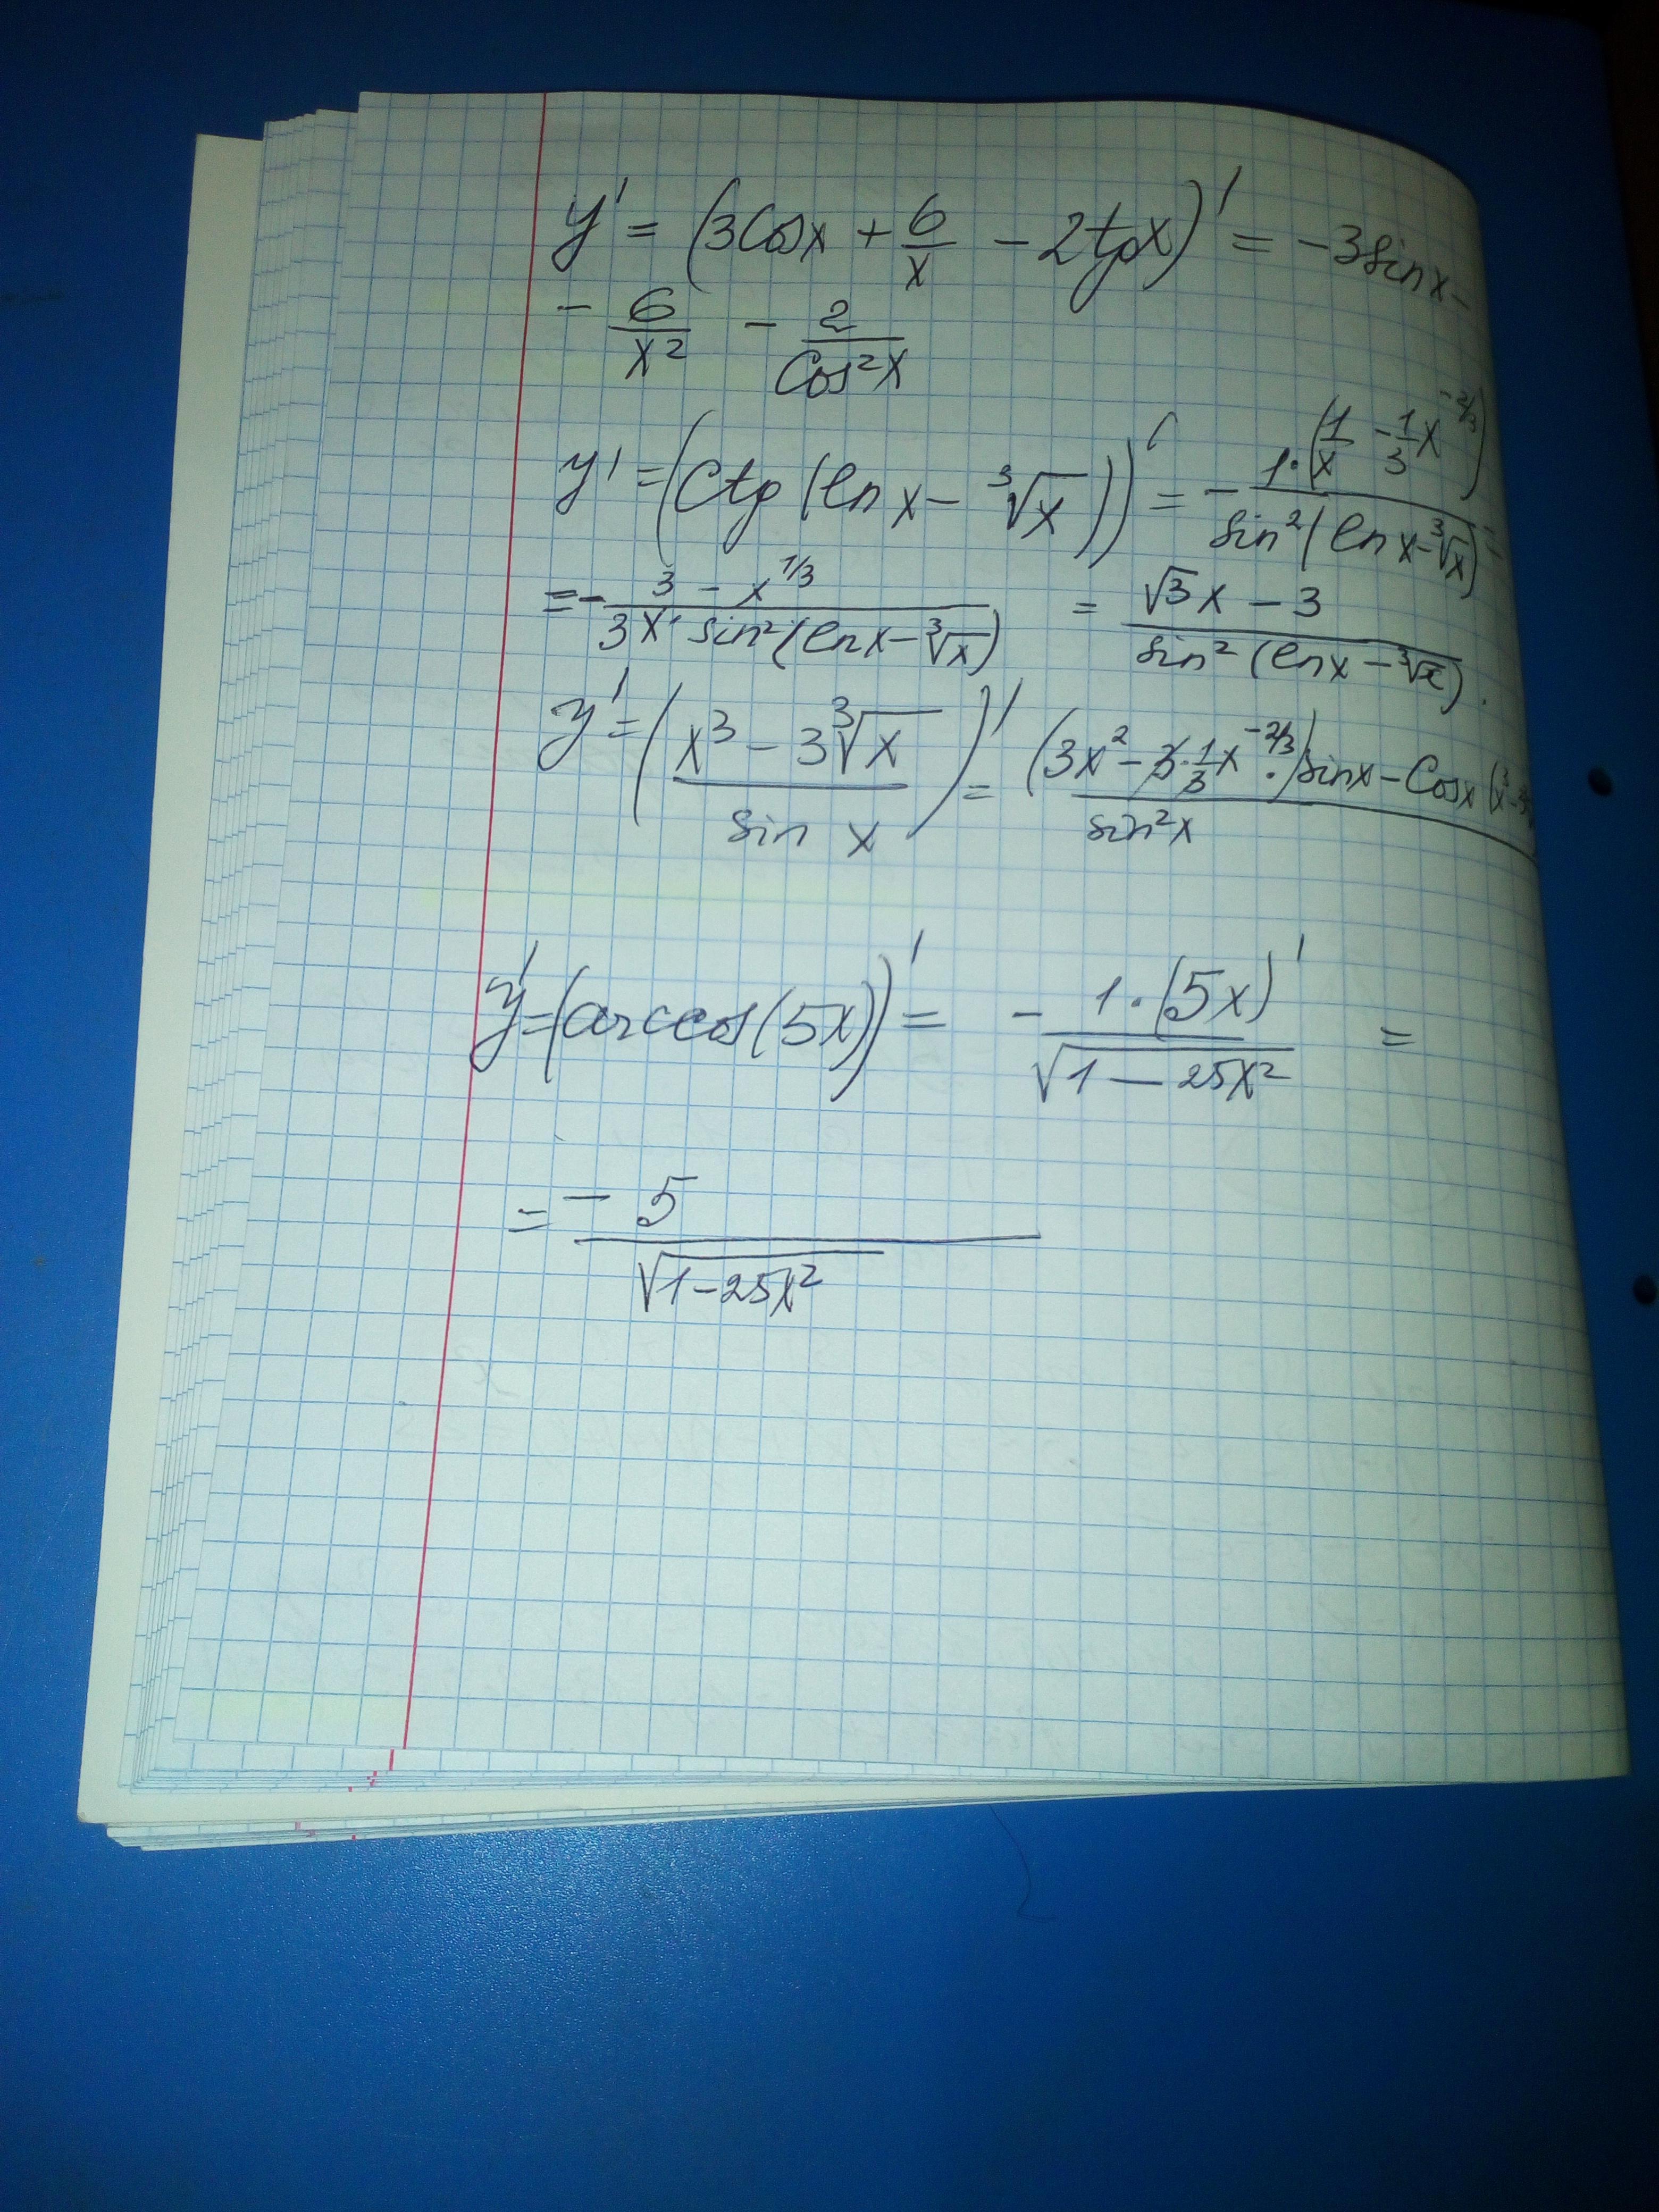 y' = (3cosx + 6/x - 2tgx)' = -3sinx -
- 6/x² - 2/cos²x
y' = (ctg(lnx - ³√x))' = - 1·(1/x - 1/3 x^(-2/3)) / sin²(lnx - ³√x) =
= - (3 - x^(1/3)) / (3x · sin²(lnx - ³√x)) = (√3x - 3) / sin²(lnx - ³√x).
y' = ((x³ - 3³√x) / sin x)' = ((3x² - 3·1/3 x^(-2/3))·sinx - cosx (x³ - 3 / sin²x
y' = (arccos(5x))' = - 1·(5x)' / √(1 - 25x²) =
= - 5 / √(1 - 25x²)